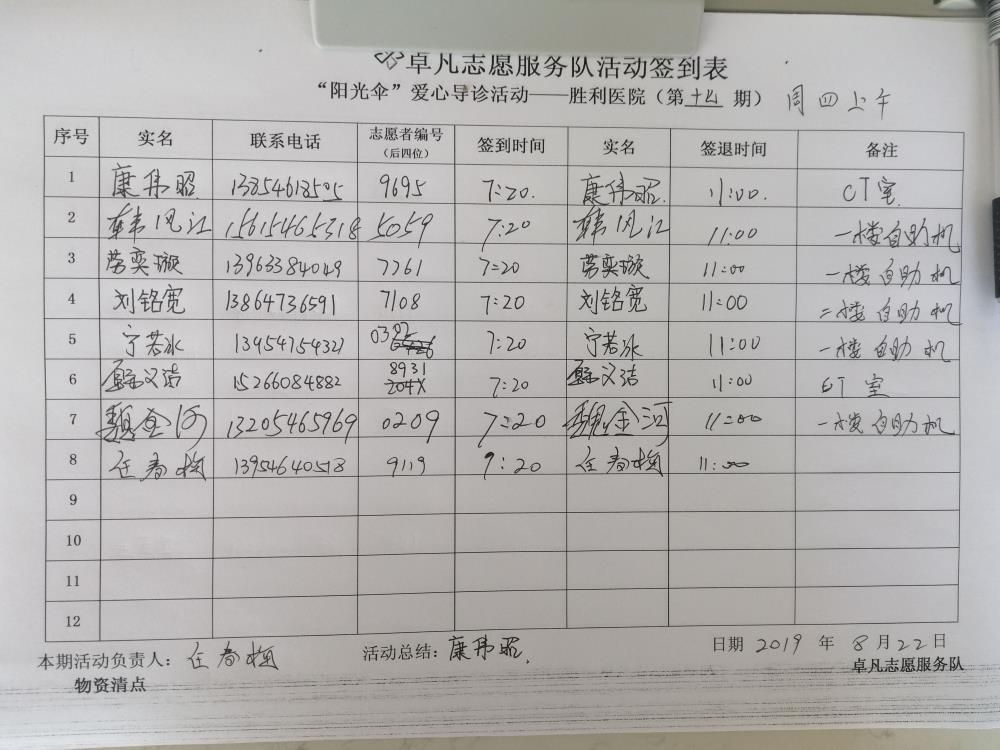 卓凡志愿服务队活动签到表
“阳光伞”爱心导诊活动——胜利医院（第十七期） 周四上午
序号 实名 联系电话 志愿者编号（后四位） 签到时间 实名 签退时间 备注
1 康伟昭 13854618505 9695 7:20. 康伟昭. 11:00. CT室
2 韩风江 15615465318 5059 7:20 韩风江 11:00 一楼自助机
3 劳奕璇 13963384049 7761 7:20 劳奕璇 11:00 一楼自助机
4 刘铭宽 13864736591 7108 7:20 刘铭宽 11:00 二楼自助机
5 宁若冰 13954754327 0382 7:20 宁若冰 11:00 一楼自助机
6 义洁 15266084882 8931 7:20 义洁 11:00 CT室
7 魏金河 13205465969 0209 7:20 魏金河 11:00 一楼自助机
8 任春梅 13954640518 9119 7:20 任春梅 11:00
9
10
11
12
本期活动负责人：任春梅 活动总结：康伟昭. 日期 2019 年 8 月 22 日
物资清点 卓凡志愿服务队